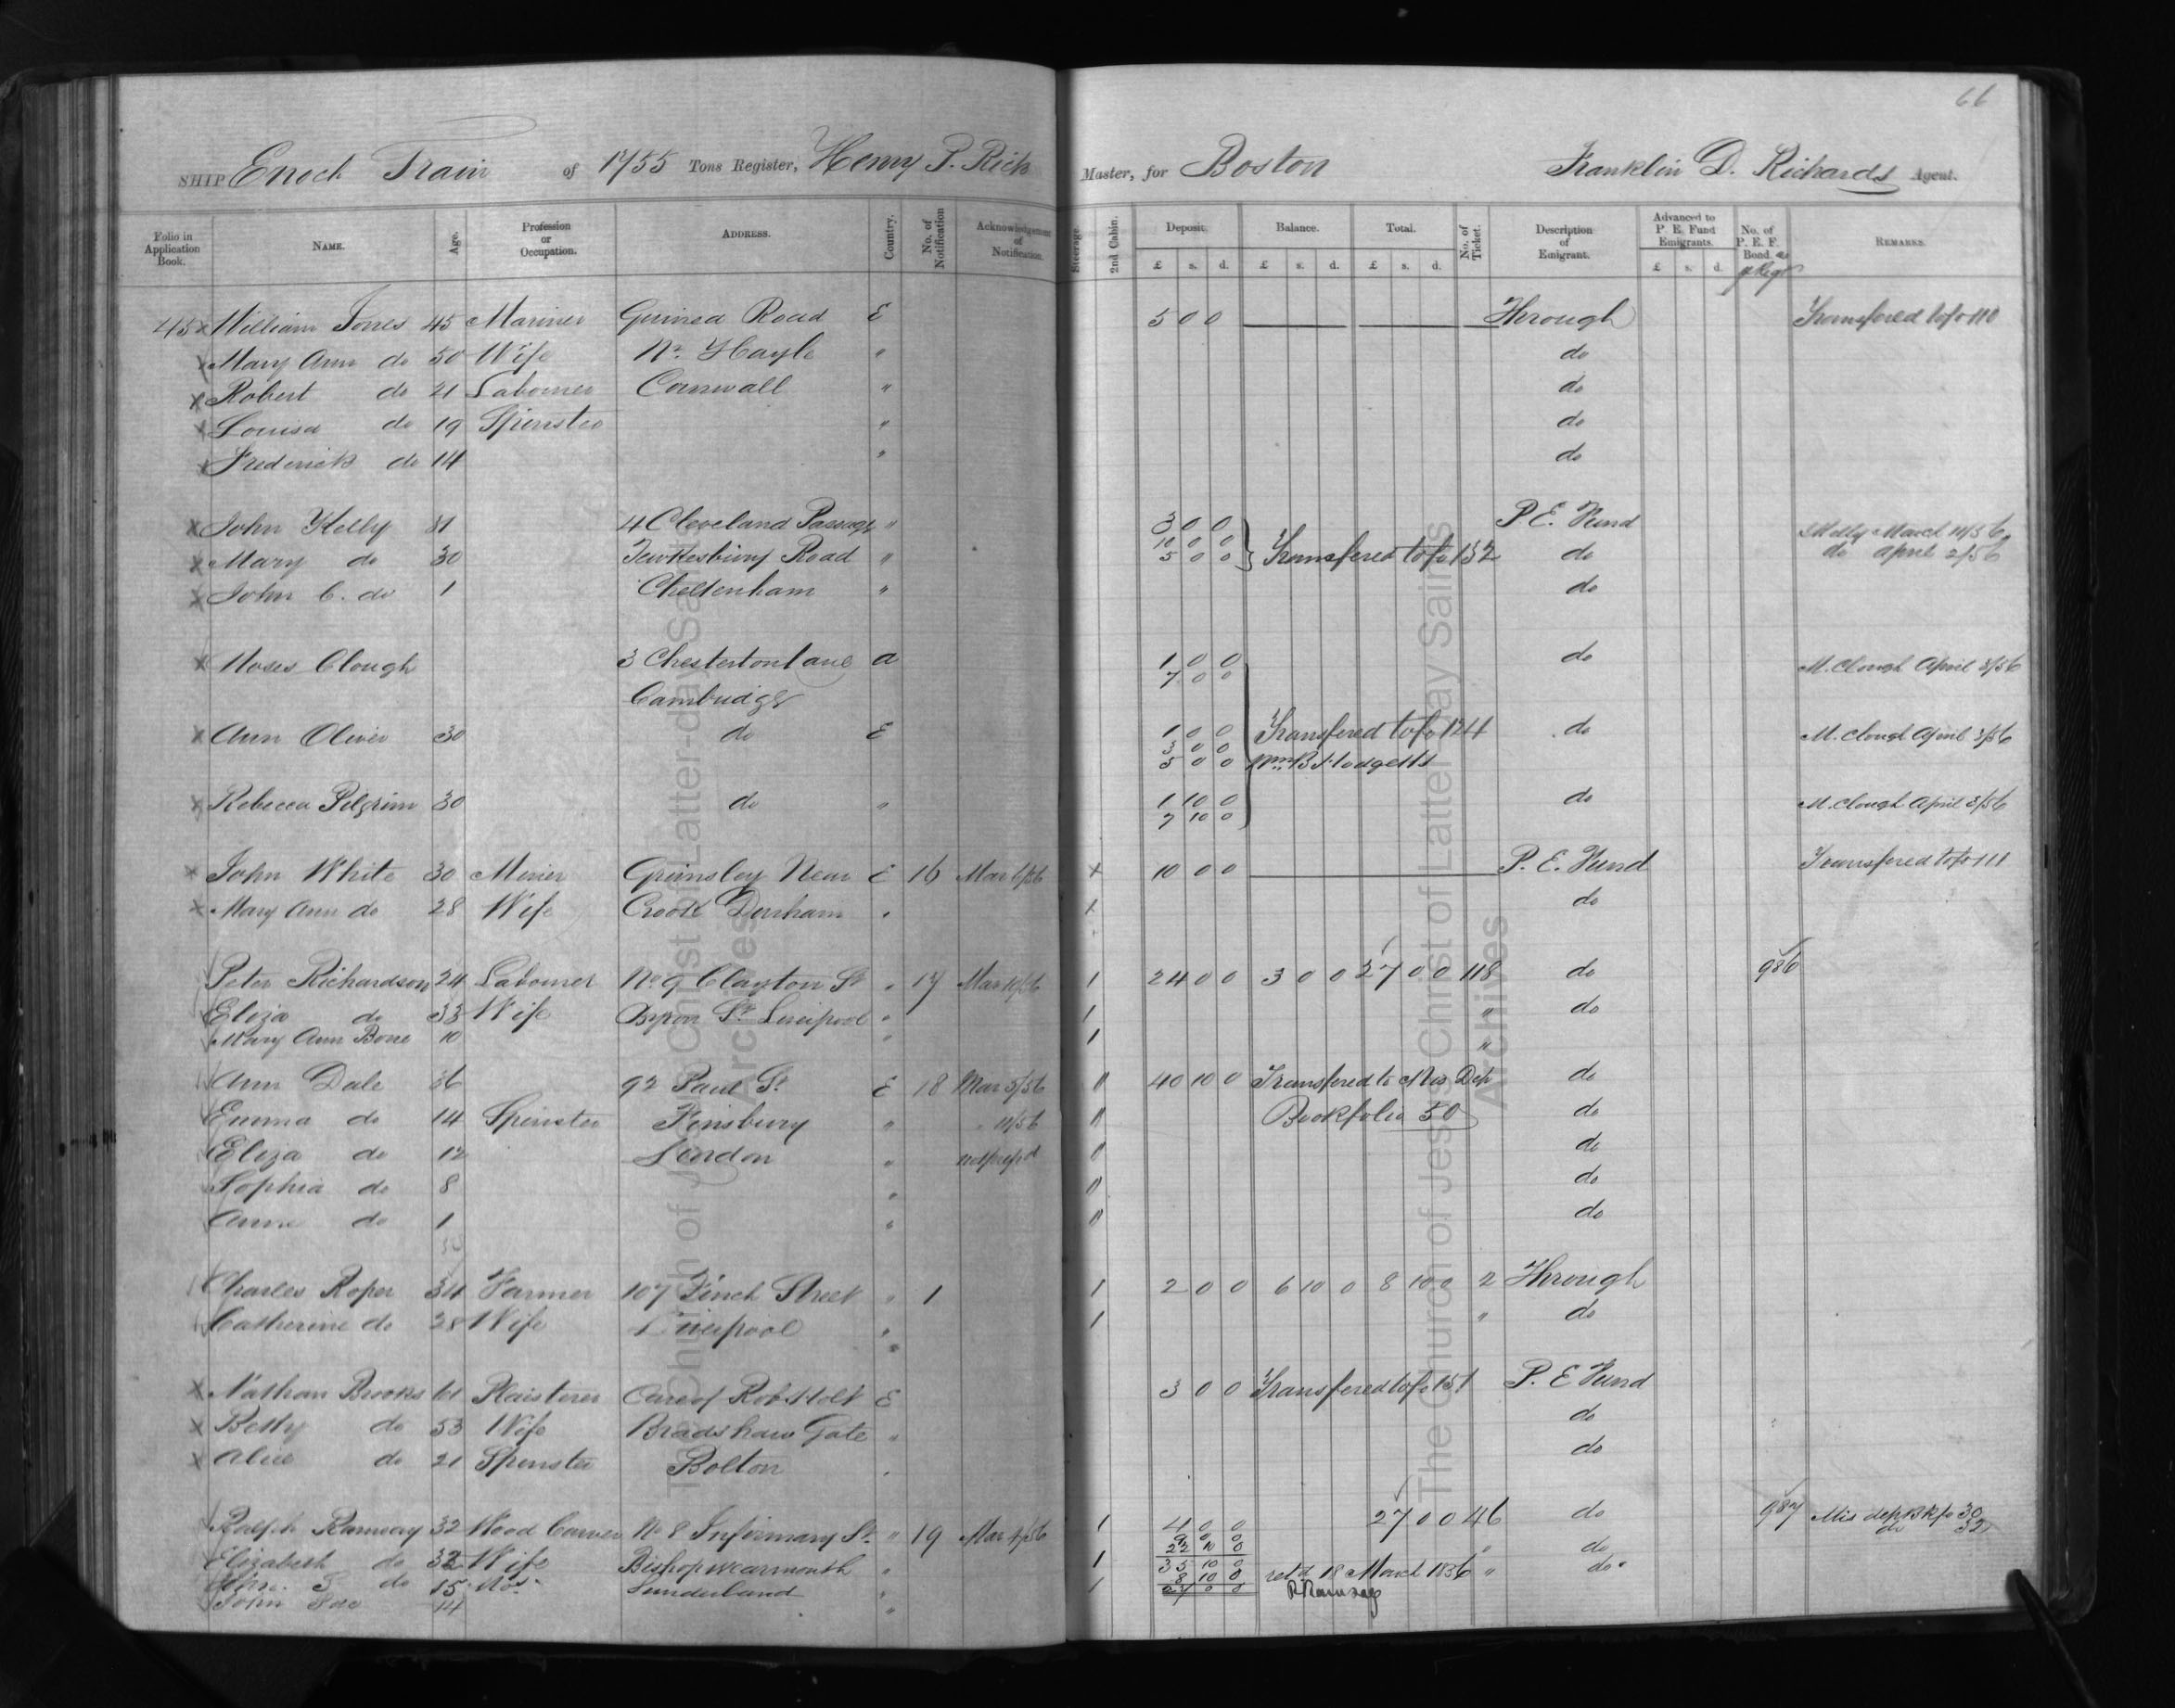 66
SHIP Enoch Train of 1755 Tons Register, Henry P. Rich Master, for Boston Franklin D. Richards Agent.
Folio in Application Book. NAME. Age. Profession or Occupation. ADDRESS. Country. No. of Notification Acknowledgement of Notification. Steerage 2nd Cabin. Deposit. £ s. d. Balance. £ s. d. Total. £ s. d. No. of Ticket. Description of Emigrant. Advanced to P. E. Fund Emigrants. £ s. d. No. of P. E. F. Bond. REMARKS.
William Jones 45 Mariner Guinea Road E 5 0 0 Through Transfered to fo 110
Mary Ann do 50 Wife Nr. Hayle " do
Robert do 21 Labourer Cornwall " do
Louisa do 19 Spinster " do
Frederick do 14 " do
John Kelly 31 4 Cleveland Passage " 3 0 0 P E. Fund J Kelly March 11/56
10 0 0
Mary do 30 Tewkesbury Road " 5 0 0 Transfered to fo 132 do do April 2/56
John C. do 1 Cheltenham " do
Moses Clough 3 Chesterton Lane a 1 0 0 do M. Clough April 3/56
7 0 0
Cambridge
Ann Oliver 30 do E 1 0 0 Transfered to fo 124 do M. Clough April 3/56
3 0 0
5 0 0 Wm. B Hodgetts
Rebecca Pilgrim 30 do " 1 10 0 do M. Clough April 3/56
7 10 0
John White 30 Miner Grimsley Near E 16 Mar 6/56 x 10 0 0 P. E. Fund Transfered to fo 111
Mary Ann do 28 Wife Crook Durham " x do
Peter Richardson 24 Labourer No 9 Clayton St " 17 Mar 10/56 1 24 0 0 3 0 0 27 0 0 118 do 986
Eliza do 33 Wife Byron St Liverpool " 1 " do
Mary Ann Bone 10 " 1 "
Ann Dale 36 92 Paul St E 18 Mar 5/56 40 10 0 Transfered to Mis Dep do
Emma do 14 Spinster Finsbury " " 11/56 Book folio 50 do
Eliza do 12 London " do
Sophia do 8 " do
Anne do 1 " do
Charles Roper 34 Farmer 107 Finch Street " 1 1 2 0 0 6 10 0 8 10 0 2 Through
Catherine do 28 Wife Liverpool " 1 " do
Nathan Brooks 61 Plaisterer Care of Robt Holt E 3 0 0 Transfered to fo 151 P. E Fund
Betty do 53 Wife Bradshaw Gate " do
Alice do 21 Spinster Bolton " do
Ralph Ramsay 32 Wood Carver No 8 Infirmary St. " 19 Mar 4/56 1 4 0 0 27 0 0 46 do 987 Mis dep Bk fo 30
9 0 0 do 32
22 10 0
Elizabeth do 32 Wife Bishopwearmouth " 1 35 10 0 " do
8 10 0 retd 18 March 1856 " do
do 15 Mos Sunderland " 1 27 0 0 R Ramsay
John 14 "
The Church of Jesus Christ of Latter-day Saints
Archives
The Church of Jesus Christ of Latter-day Saints
Archives